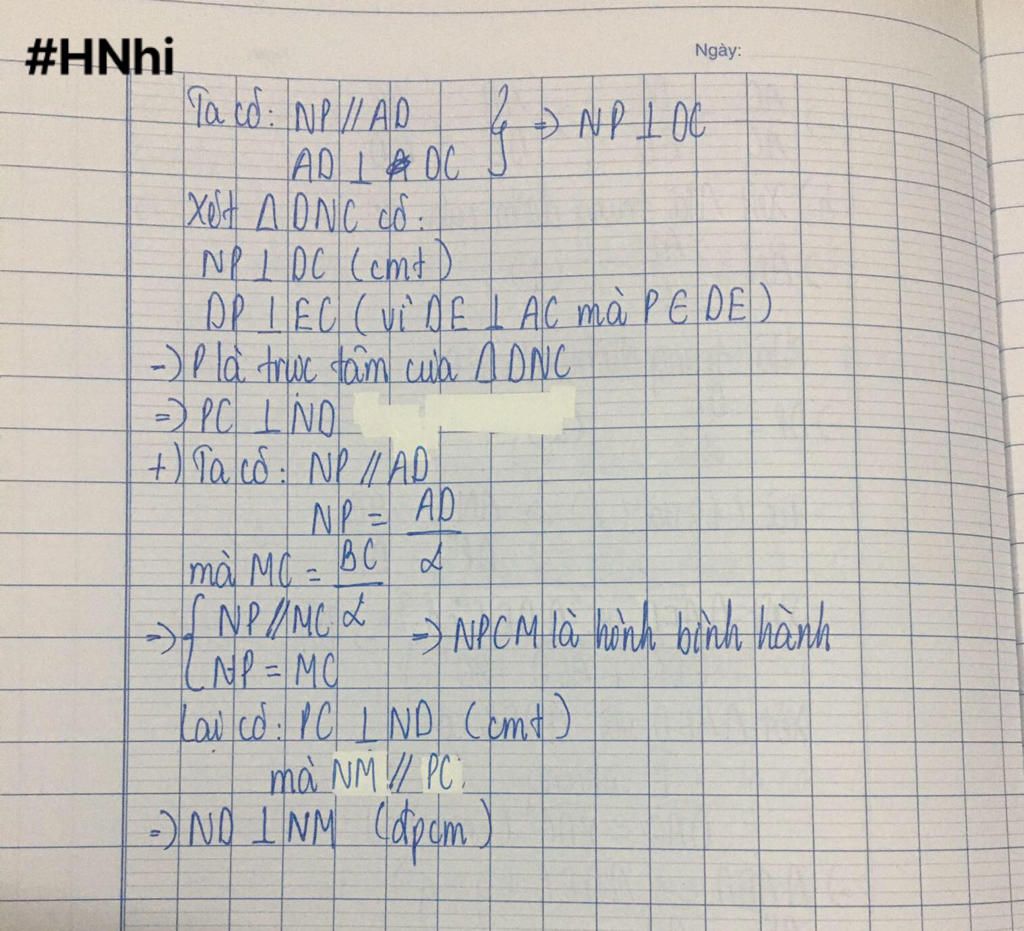 #HNhi
Ngày:
Ta có: NP // AD
AD ⊥ DC } => NP ⊥ DC
Xét Δ DNC có:
NP ⊥ DC (cmt)
DP ⊥ EC (vì DE ⊥ AC mà P ∈ DE)
=> P là trực tâm của Δ DNC
=> PC ⊥ ND
+) Ta có: NP // AD
NP = AD/2
mà MC = BC/2
=> { NP // MC
NP = MC => NPCM là hình bình hành
Lại có: PC ⊥ ND (cmt)
mà NM // PC.
=> ND ⊥ NM (đpcm)